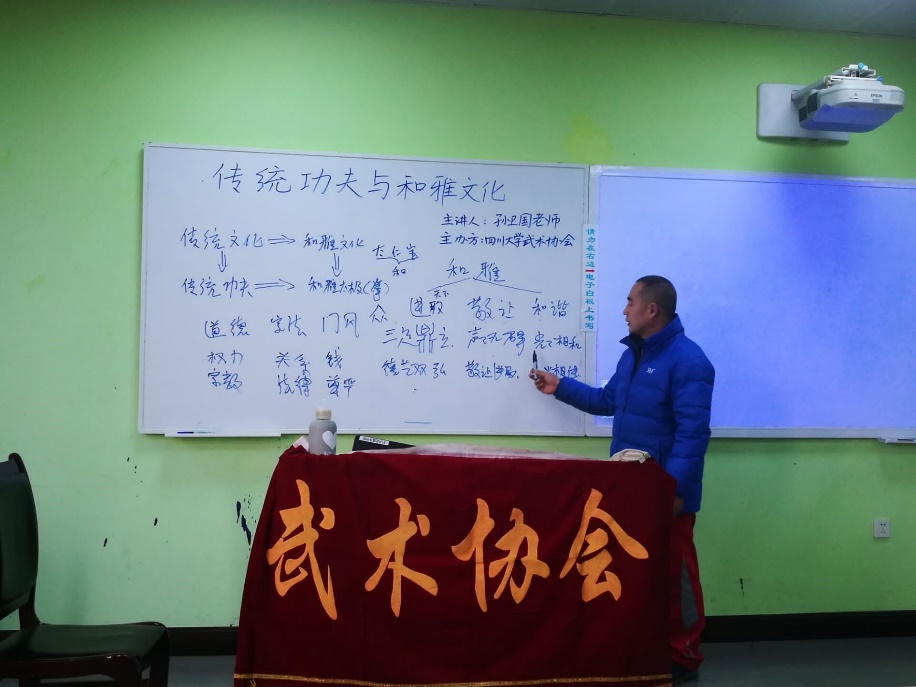 传统功夫与和雅文化
主讲人：孙卫国老师
主办方：四川大学武术协会
传统文化⇒和雅文化
和
和雅
传统功夫⇒和雅太极(拳)
天下
进取 敬让 和谐
道德 字法 门风 众
三足鼎立
权力 关系 钱
宗教 法律 尊严
德艺双弘 敬让进取
请勿在右边电子白板上书写
EPSON
武术协会